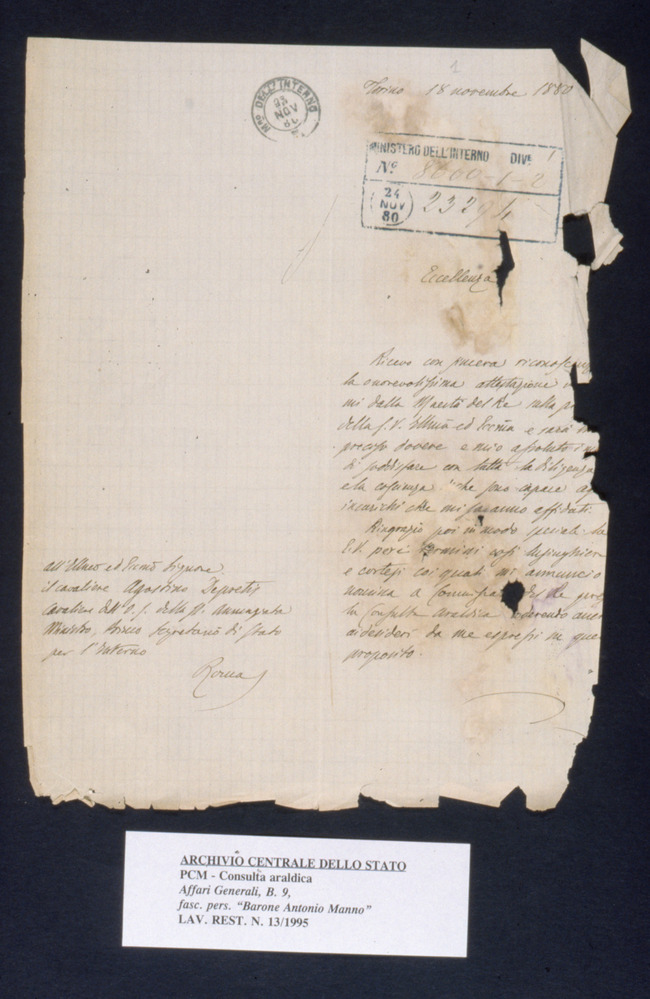 1
Torino 18 novembre 1880
Mro DELL'INTERNO
NOV
MINISTERO DELL'INTERNO DIVe 1
No. 8000-1-2
24
NOV
80
2329
Eccellenza
Ricevo con sincera riconoscenz
la onorevolissima attestazione
mi dalla Maestà del Re sulla
della S.V. Illma ed Eccma e sarà
preciso dovere e mio assoluto
di soddisfare con tutta la diligenza
e la costanza che
incarichi che mi saranno affidati.
Ringrazio poi in modo speciale la
E.V. pere termini così lusinghieri
e cortesi coi quali mi annunciò
nomina a Commissario del Re
la Consulta araldica
ai desideri da me espressi in que
proposito.
all'Illmo ed Eccmo Signore
il cavaliere Agostino Depretis
Cavaliere dell'O. S. della SS. Annunziata
Ministro, Primo Segretario di Stato
per l'Interno
Roma
ARCHIVIO CENTRALE DELLO STATO
PCM - Consulta araldica
Affari Generali, B. 9,
fasc. pers. "Barone Antonio Manno"
LAV. REST. N. 13/1995